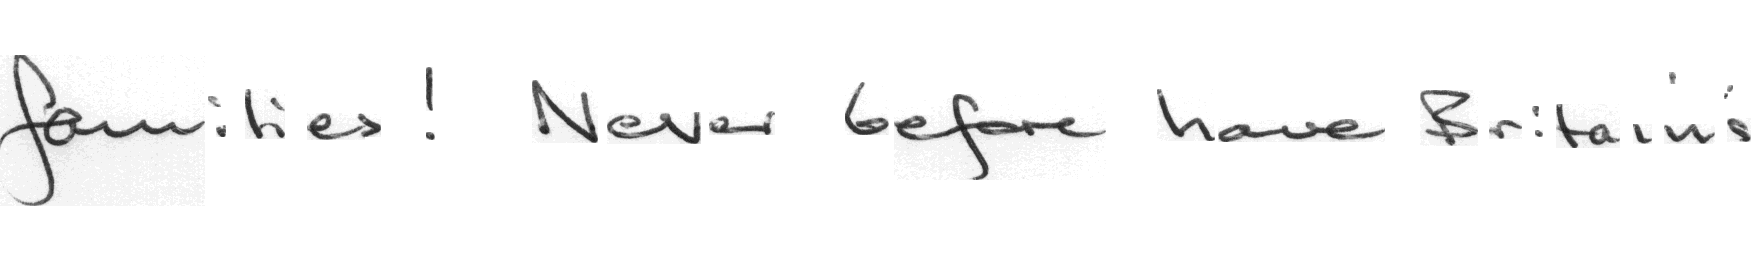 families! Never before have Britain's